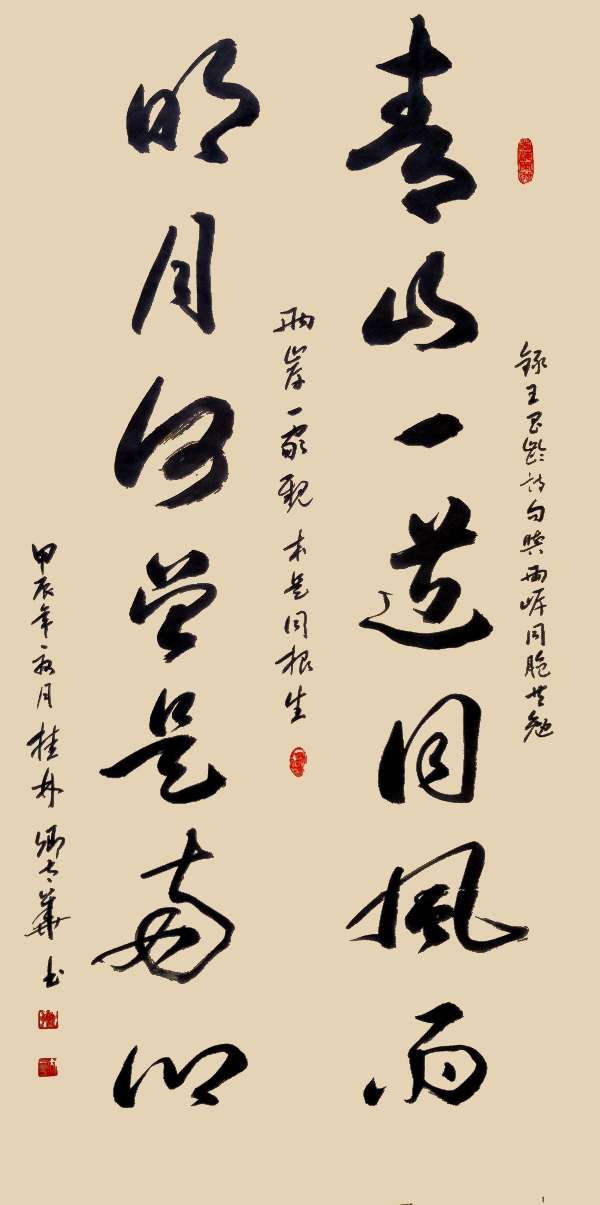 錄王昌齡詩句與兩岸同胞共勉
青山一道同風雨
兩岸一家親 本是同根生
明月何曾是兩鄉
甲辰年秋月桂林 卿華书